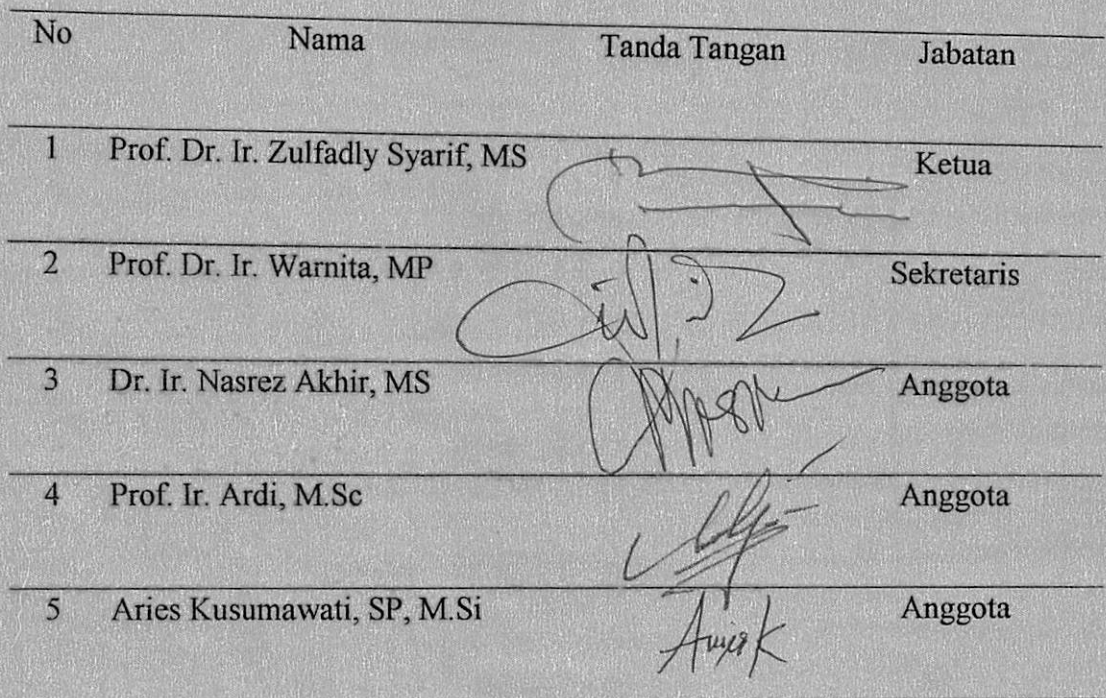 No Nama Tanda Tangan Jabatan
1 Prof. Dr. Ir. Zulfadly Syarif, MS Ketua
2 Prof. Dr. Ir. Warnita, MP Sekretaris
3 Dr. Ir. Nasrez Akhir, MS Anggota
4 Prof. Ir. Ardi, M.Sc Anggota
5 Aries Kusumawati, SP, M.Si Anggota